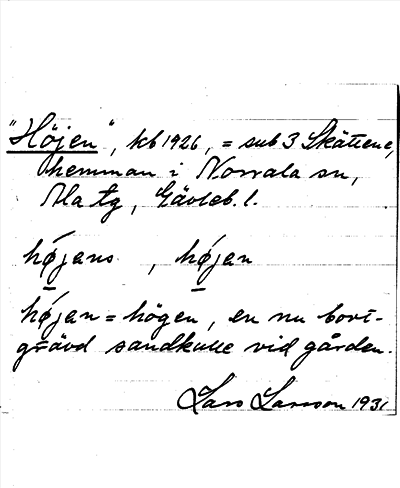 "Höjen", kb 1926, = sub 3 Skättene,
hemman i Norrala sn,
Ala tg, Gävleb. l.
hǿjans, hǿjan
hǿjan = högen, en nu bort-
grävd sandkulle vid gården.
Lars Larsson 1931